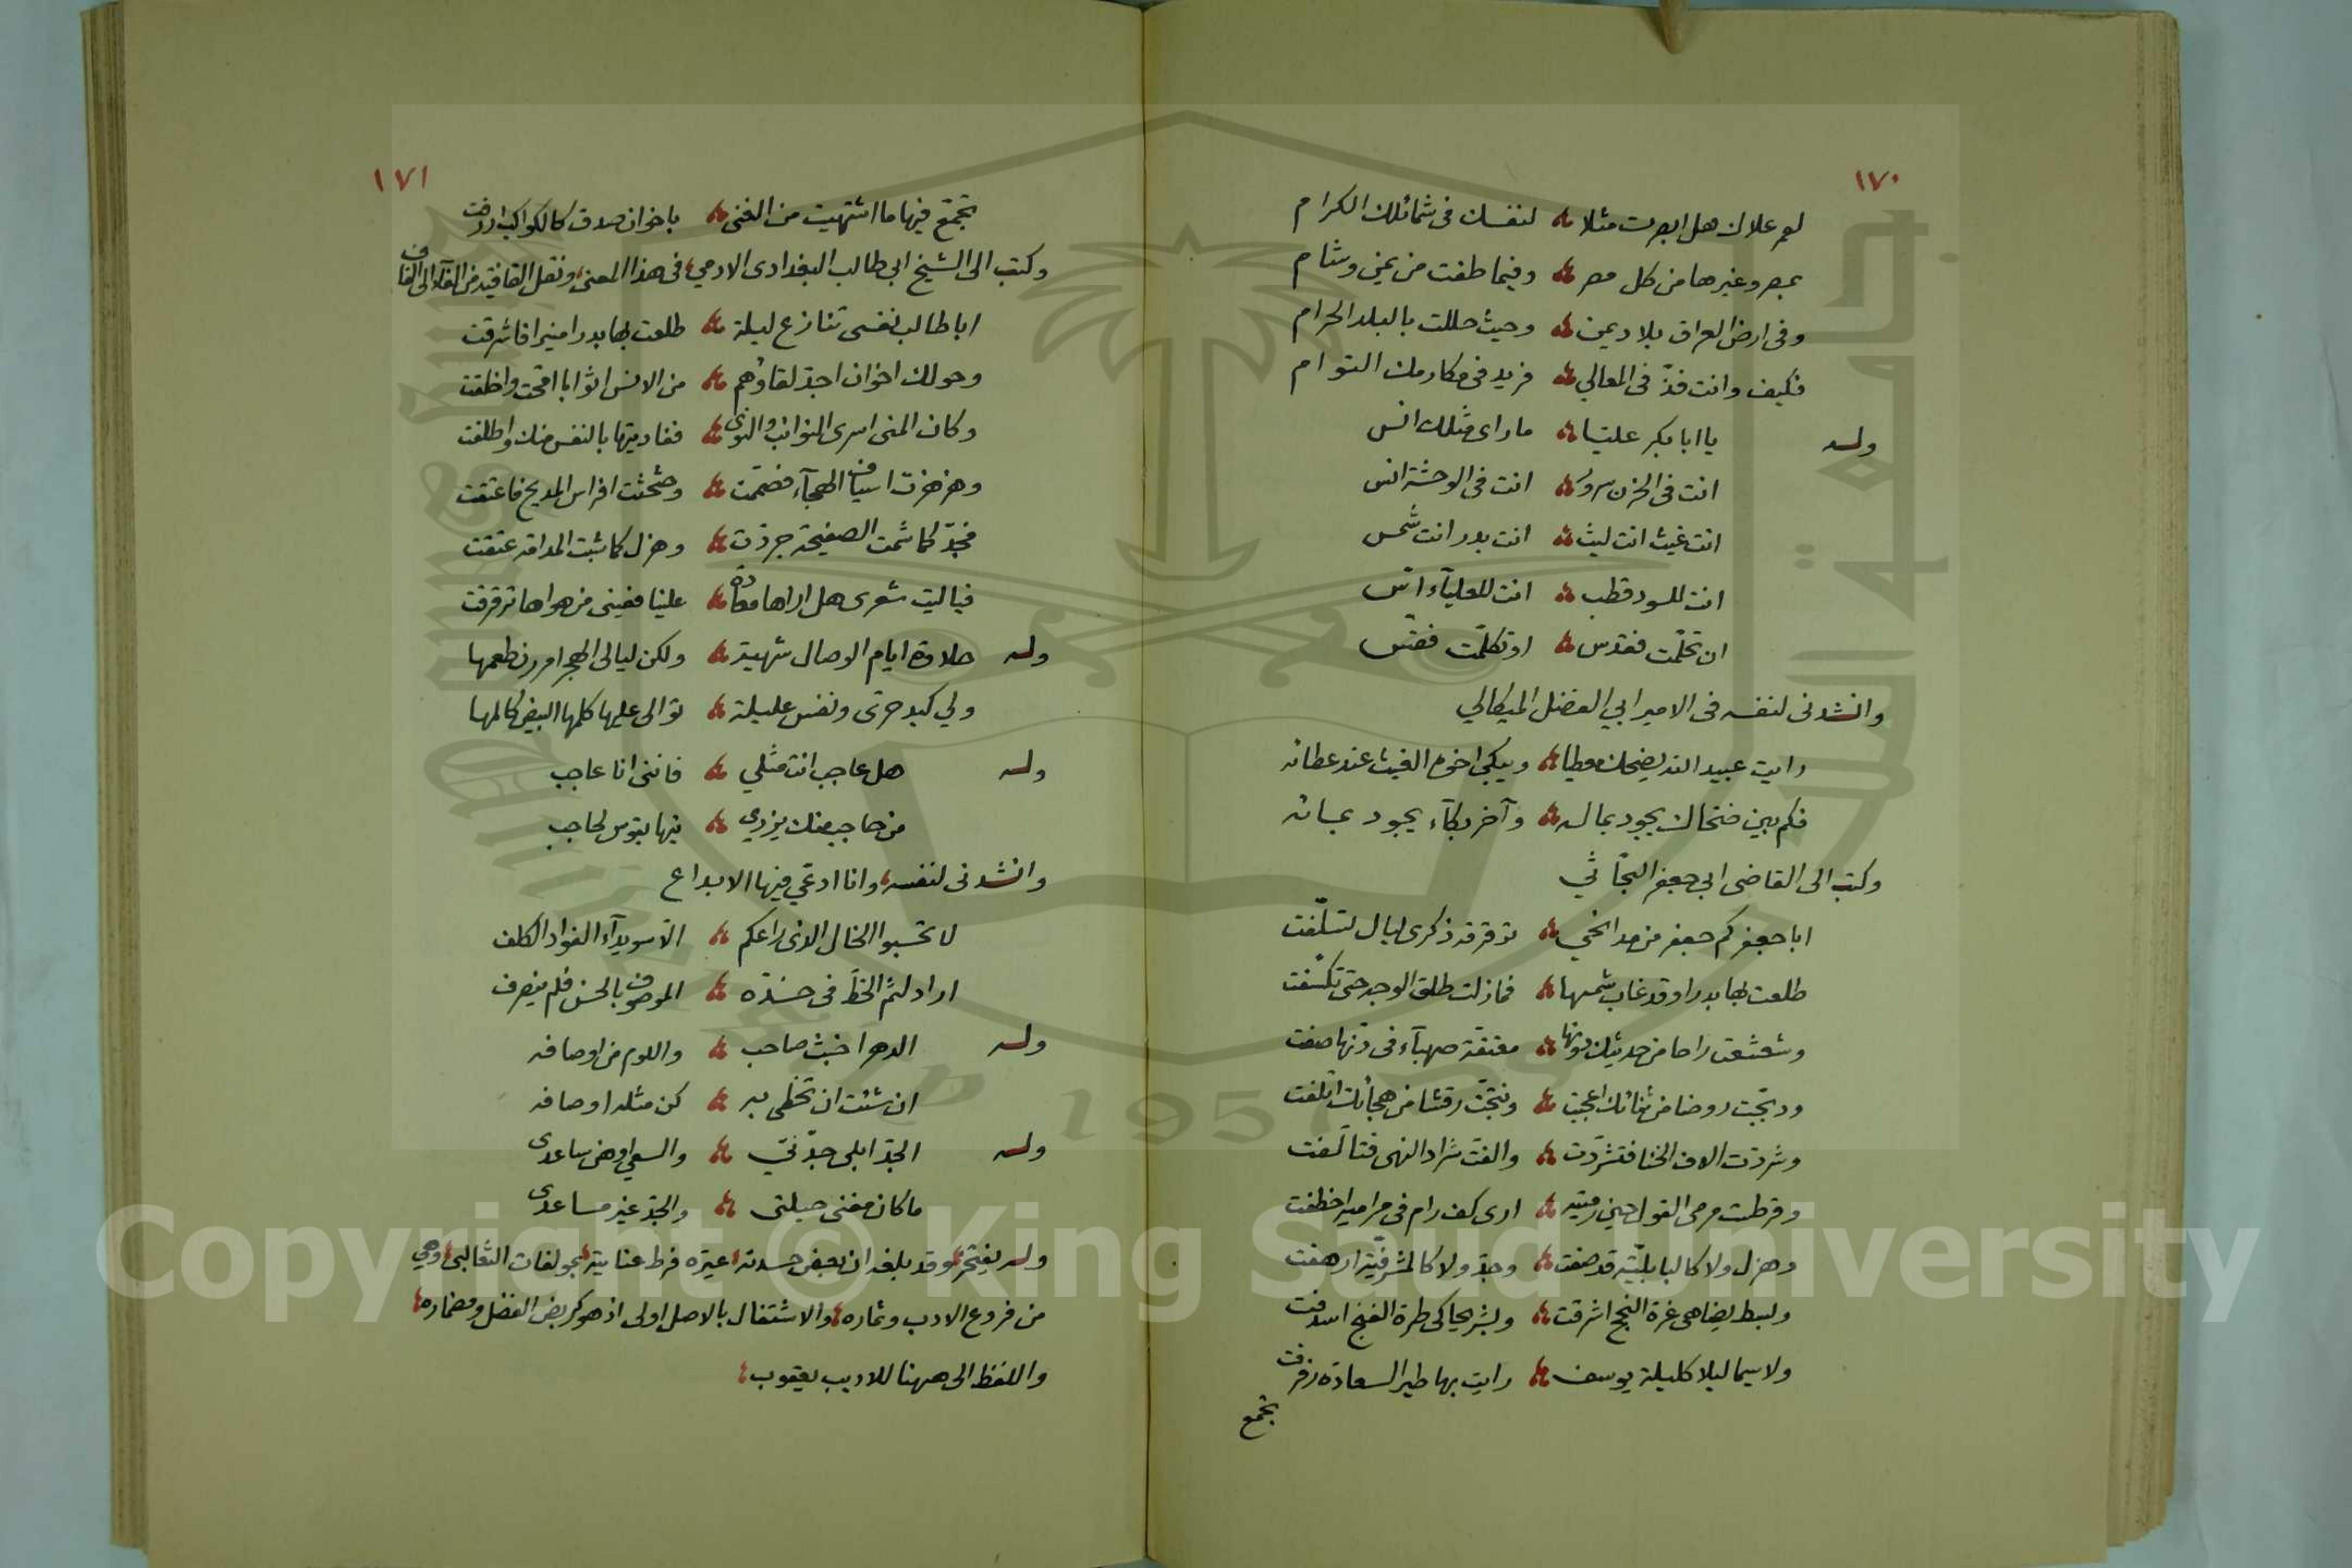 ١٧٠
لعمر علاك هل ابصرت مثلا لنفسك فى شمائلك الكرام
بمصر وغيرها من كل مصر وفيما طفت من يمن وشام
وفى ارض العراق بلاد يمن وحيث حللت بالبلد الحرام
فكيف وانت فذّ فى المعالي فريد فى مكارمك التوام
وله يا ابا بكر علينا ما راى مثلك انس
انت فى الحزن سرور انت فى الوحشة انس
انت غيث انت ليث انت بدر انت شمس
انت للسودد قطب انت للعلياء اسّ
ان تحلّمت فقدس او تكلّمت فقسّ
وانشدنى لنفسه فى الامير ابي الفضل الميكالي
رايت عبيد الله يضحك معطيا ويبكي اخوه الغيث عند عطائه
فكم بين ضحاك يجود بماله وآخر بكآء يجود بمائه
وكتب الى القاضى ابي جعفر البحّاثي
ابا جعفر كم جعفر من مدامعي ترقرقه ذكرى ليال تسلّفت
طلعت بها بدرا وقد غاب شمسها فما زلت طلق الوجه حتى تكشّفت
وشعشعت راحا من حديثك دونها معتقة صهبآء فى دنّها صفت
ودبّجت روضا من ثنائك اعجبت ونتجّت رقشا من هجائك اتلفت
وشردت الاف الخنا فتشرّدت والفت شراد النهى فتالّفت
وقرطست مرمى القول حين رميته ارى كف رام فى مراميه اخطفت
وهزل ولا كالبابليّة قد صفت وجد ولا كالمشرفيّة ارهفت
وبسط يضاهى غرة النجح اشرقت وبشر يحاكى طرة الفنج اسدفت
ولا سيما ليلا كليلة يوسف رايت بها طير السعادة رفرفت
تجمع
١٧١
تجمّع فيها ما اشتهيت من الغنى باخوان صدق كالكواكب اردفت
وكتب الى الشيخ ابي طالب البغدادى الادمي فى هذا المعنى ونقل القافية من الفآء الى القاف
ابا طالب نفسى تنازع ليلة طلعت بها بدرا منيرا فاشرقت
وحولك اخوان اجدّ لقاؤهم من الانس اثوابا امّحت واخلقت
وكان المنى اسرى النوائب والنوى ففاديتها بالنفس منك واطلقت
وهزهزت اسياف الهجآء فصمّمت وحثحثت افراس المديح فاعنقت
فجدّ كما شمت الصفيحة جردت وهزل كما شبت المدامة عتقت
فياليت شعرى هل اراها معادة علينا فعينى من هواها ترقرقت
وله حلاوة ايام الوصال شهية ولكن ليالى الهجر امررن طعمها
ولي كبد حرى ونفس عليلة توالى عليها كلمها البيض كالمها
وله هل عاجب انت مثلي فاننى انا عاجب
من حاجب منك يزري تيها بقوس لحاجب
وانشدنى لنفسه وانا ادعي فيها الابداع
لا تحسبوا الخال الذى راعكم الا سويدآء الفواد الكلف
اراد لثم الخط فى خدّه الموصوف بالحسن فلم ينصرف
وله الدهر اخبث صاحب واللوم من اوصافه
ان شئت ان تحظى به كن مثله او صافه
وله الجدّ ابلى جدّتي والسعى اوهى ساعدى
ما كان مغنى حيلتى والجدّ غير مساعدى
وله يفتخر وقد بلغه ان بعض حسدته عيره فرط عنايته بمولفات الثعالبى وهي
من فروع الادب وثماره والاشتغال بالاصل اولى اذ هو كربض الفضل ومضماره
واللفظ الى ههنا للاديب يعقوب
Copyright © King Saud University
1957